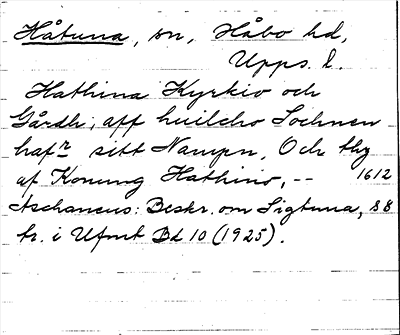 Håtuna, sn, Håbo hd,
Upps. l.
Hathina Kyrkio och
Gårdh, aff huilcho Sochnen
hafr sitt Nampn, Och thz
af Konung Hathino, -- 1612
Aschaneus: Beskr. om Sigtuna, 88
tr. i Ufmt Bd 10 (1925).